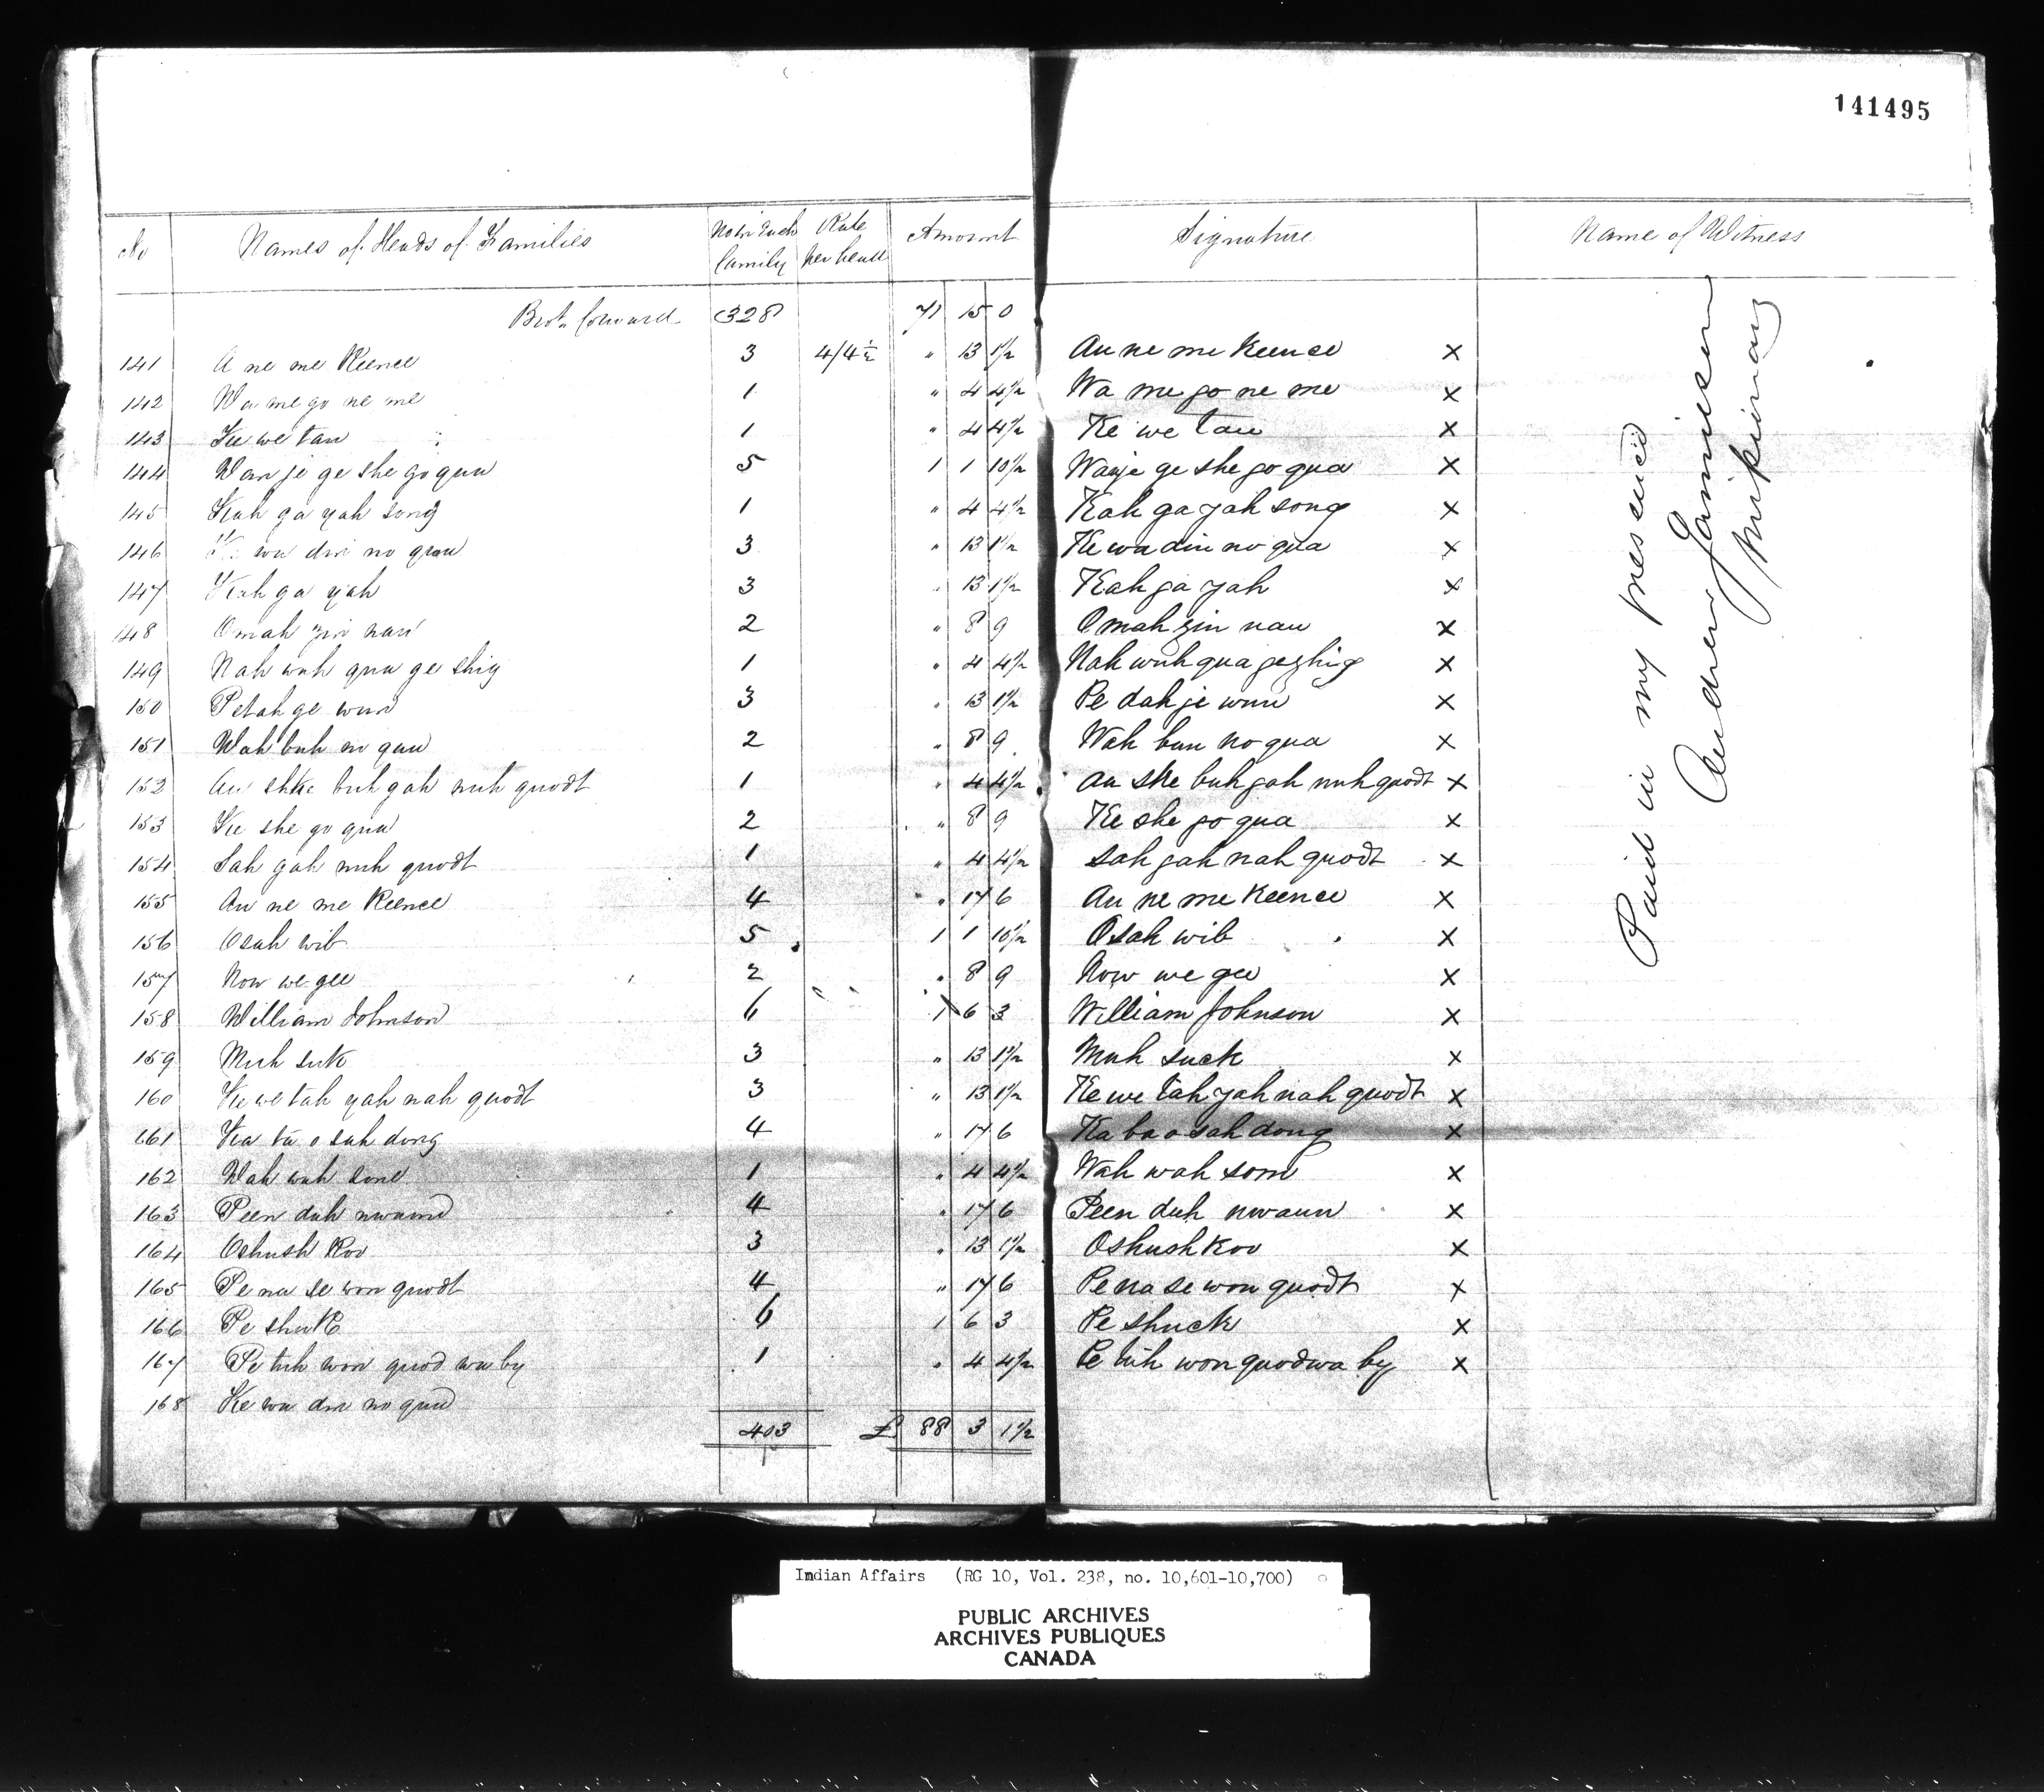 141495
No Names of Heads of Families No in Each family Rate per head Amount Signature Name of Witness
Brot. forward 328 71 15 0
141 A ne me Keence 3 4/4½ " 13 1½ Au ne me Keence X
142 Wa me go ne me 1 " 4 4½ Wa me go ne me X
143 Ke we tau 1 " 4 4½ Ke we tau X
144 Wan je ge she go qua 5 1 1 10½ Wanje ge she go qua X
145 Kah ga yah song 1 " 4 4½ Kah ga yah song X
146 Ke wa din no qua 3 " 13 1½ Ke wa din no qua X
147 Kah ga yah 3 " 13 1½ Kah ga yah X
148 Omah zin nau 2 " 8 9 Omah zin nau X
149 Nah wah qua ge shig 1 " 4 4½ Nah wuh qua gezhig X
150 Petah ge wun 3 " 13 1½ Pe dah je wun X
151 Wah buh no qua 2 " 8 9 Wah bun no qua X
152 Au shke buh gah nuh quodt 1 " 4 4½ Au ske buh gah nuh quodt X
153 Ke she go qua 2 " 8 9 Ke she go qua X
154 Sah gah nuh quodt 1 " 4 4½ Sah gah nah quodt X
155 Au ne me Keence 4 " 17 6 Au ne me Keence X
156 Osah wib 5 1 1 10½ Osah wib X
157 Now we gee 2 " 8 9 Now we gee X
158 William Johnson 6 1 6 3 William Johnson X
159 Muh suk 3 " 13 1½ Muh suck X
160 Ke we tah yah nah quodt 3 " 13 1½ Ke we tah yah nah quodt X
161 Ka ba o sah dong 4 " 17 6 Ka ba o sah dong X
162 Wah wah sone 1 " 4 4½ Wah wah som X
163 Peen duh nwaun 4 " 17 6 Peen duh nwaun X
164 Oshush Koo 3 " 13 1½ Oshush Koo X
165 Pe na se won quodt 4 " 17 6 Pe na se won quodt X
166 Pe shuk 6 1 6 3 Pe shuck X
167 Pe tuh won quod wa by 1 " 4 4½ Pe tuh won quodwa by X
168 Ke wa din no qua
403 £ 88 3 1½
Paid in my presence
Andrew Jamieson
Indian Affairs (RG 10, Vol. 238, no. 10,601-10,700)
PUBLIC ARCHIVES
ARCHIVES PUBLIQUES
CANADA